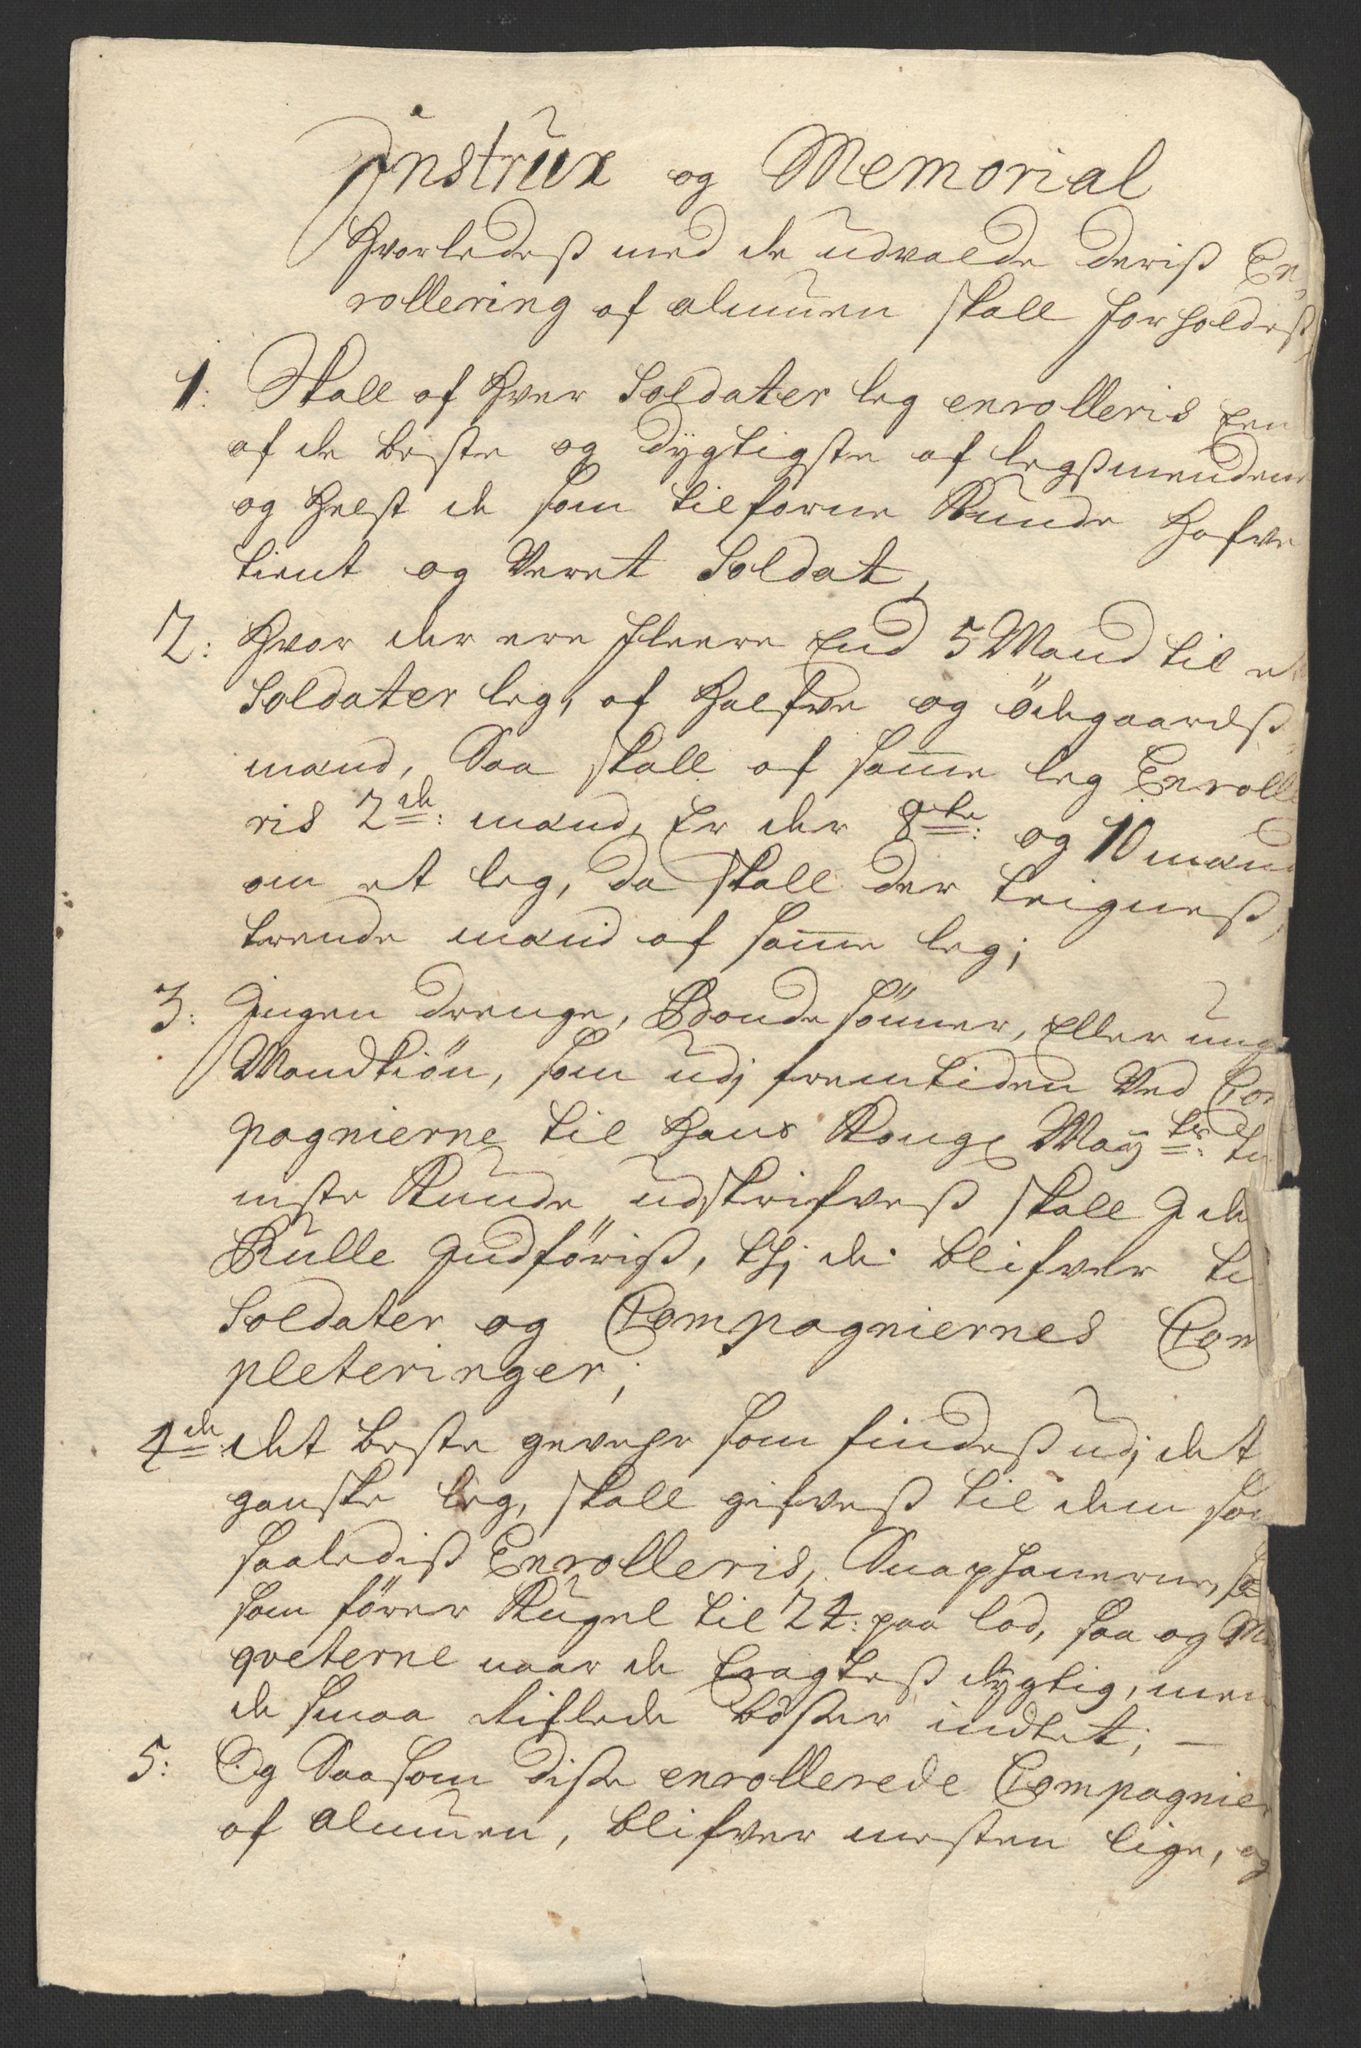 Instrux og Memorial
Hvorledeß med de udvalde deriß En
rollering af almuen skall forholdeß
1: Skall af hver Soldater leg enrolleris Een
af de beste og dygtigste af legßmendene
og helst de som tilforne kunde hafve
tient og veret Soldat,
2: Hvor der ere fleere End 5 Mand til et
Soldater leg, af halfve og ödegaardß
mænd, Saa skall af samme leg Enrolle
ris 2de: mænd, Er der 8te: og 10 mænd
om et leg, da skall der teigneß,
trende mænd af samme leg;
3: Ingen drenge, Bonde sönner, Eller ung
Mandkiön, som udj fremtiden ved Com
pagnierne til Hans Kongl Mayts: tie
niste kunde udskrifveß skall J de
Rulle Indföriß, thj de blifver til
Soldater og Compagniernes Com
pleteringer;
4de det beste gevehr som findeß udj det
ganske leg, skall gifveß til dem som
saalediß Enrolleris, Snaphanerne,
som förer kugel til 24: paa lod, saa og Mus
qveterne naar de Eragteß dygtig, men
de smaa riflede bösser indtet; —
5: Og Saasom disse enrollerede Compagnier
af almuen, blifver mesten lige, og